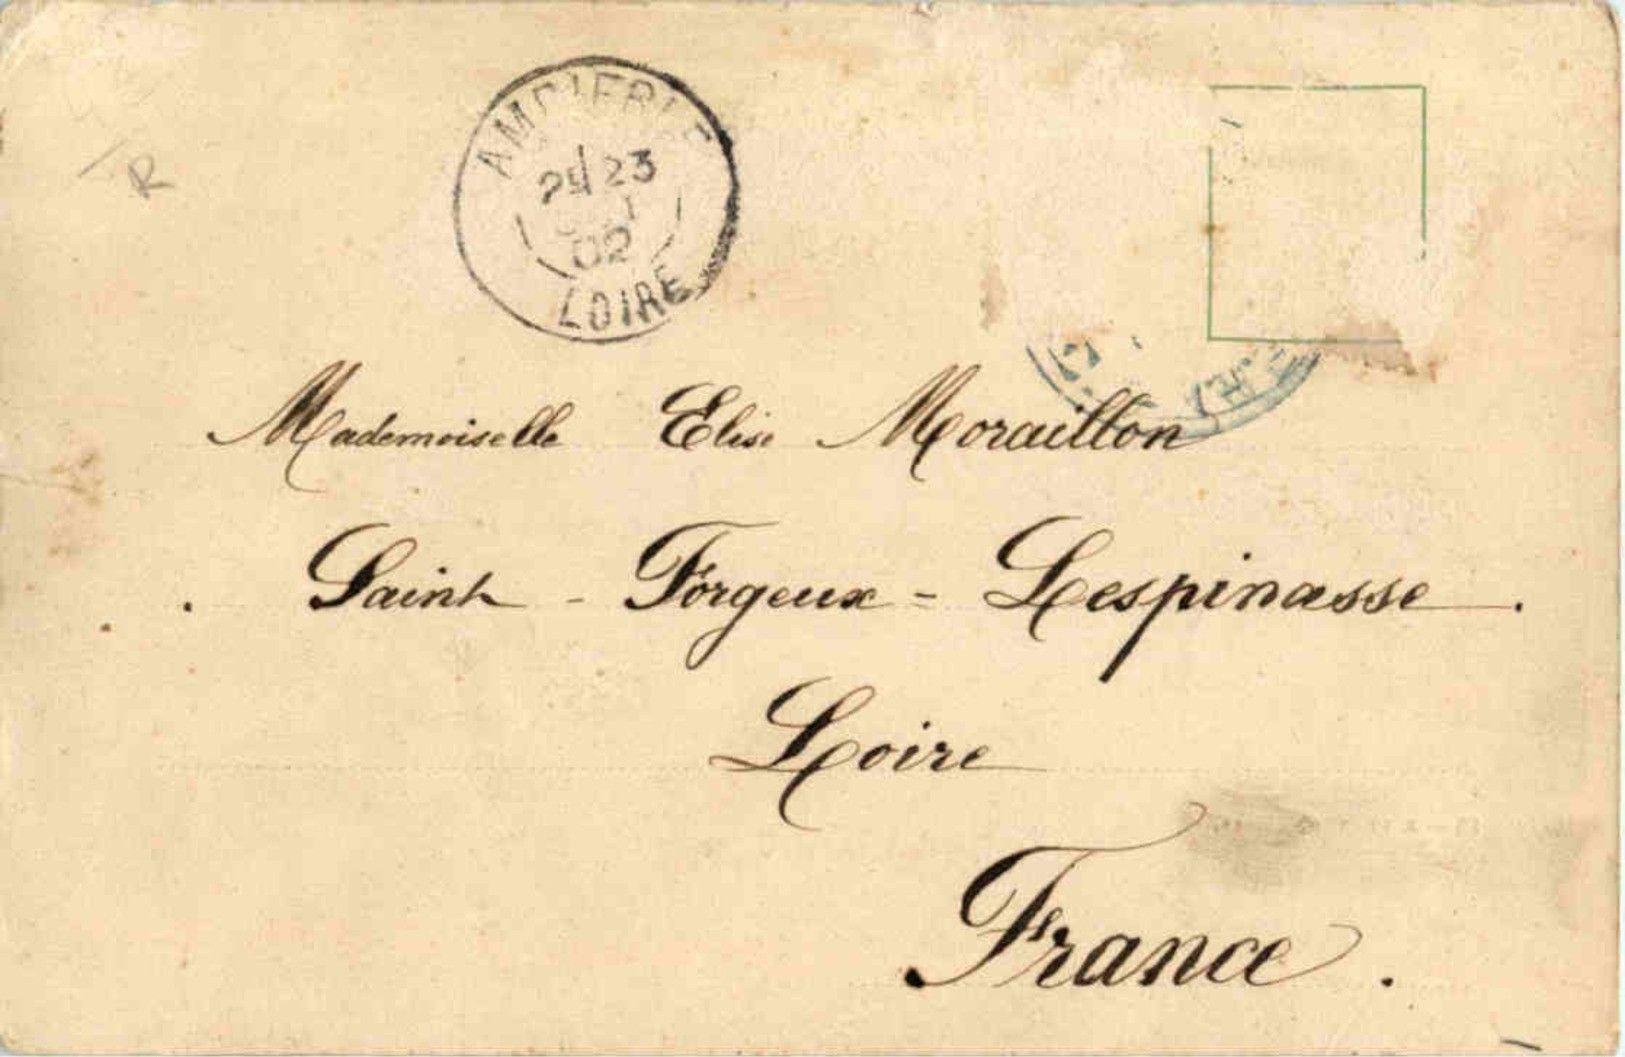 R
AMBIERLE
23
02
LOIRE
Mademoiselle Elise Moraillon
Saint - Forgeux = Lespinasse.
Loire
France.